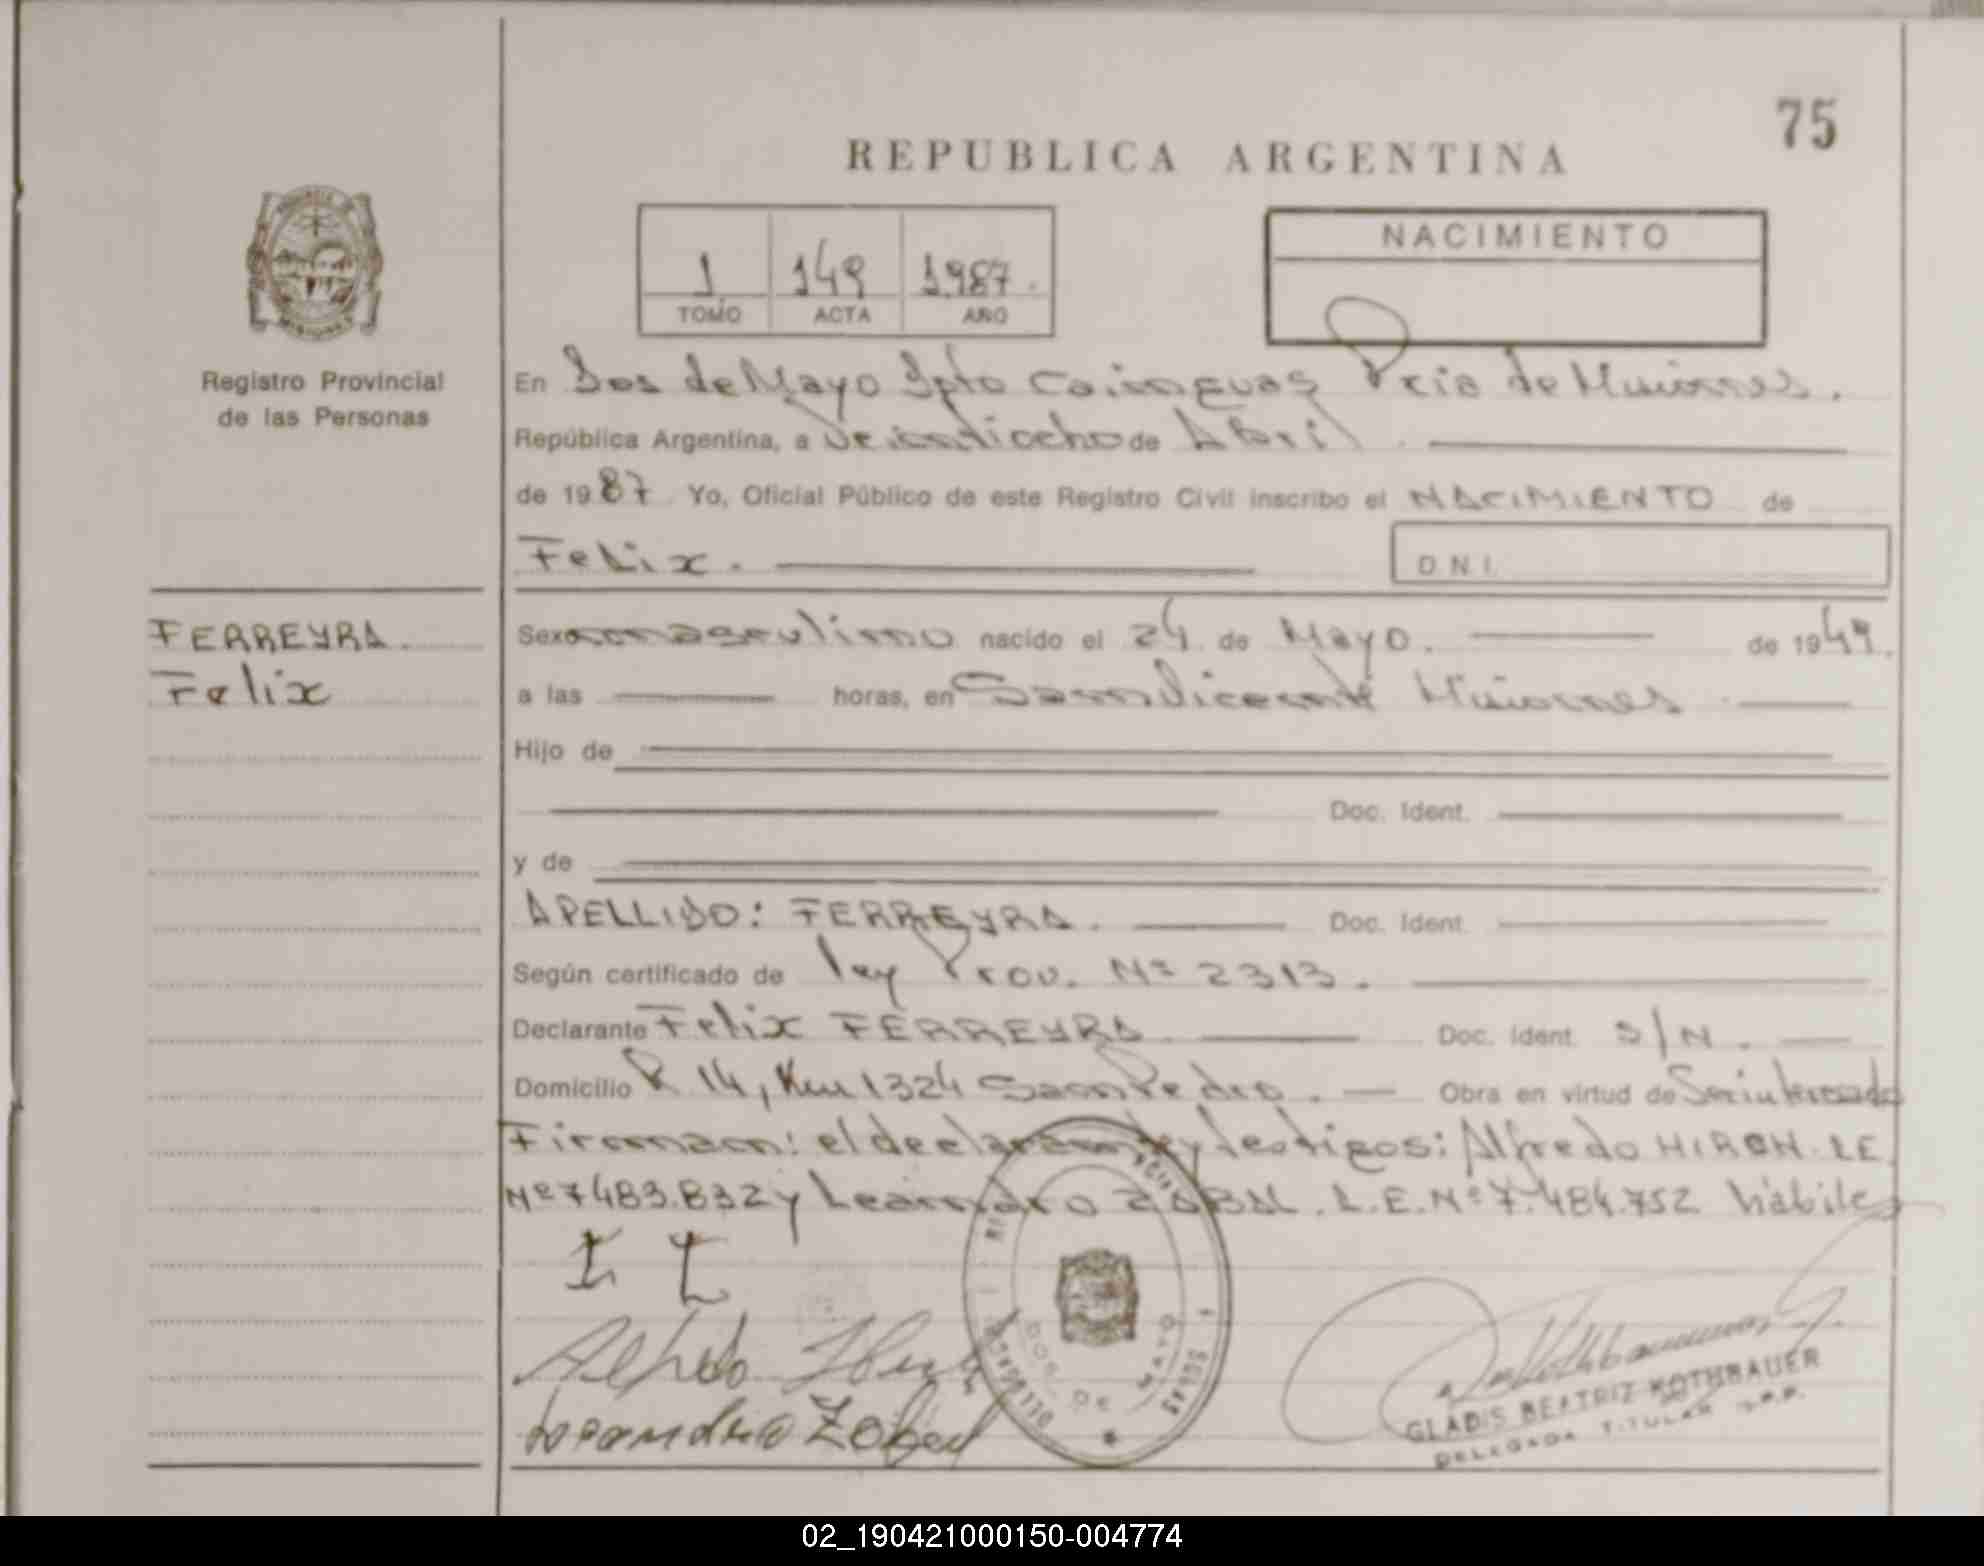 75
REPUBLICA ARGENTINA
1 149 1.987.
TOMO ACTA AÑO
NACIMIENTO
MISIONES
Registro Provincial
de las Personas
En Dos de Mayo Dpto Cainguas Pcia de Misiones.
República Argentina, a Veintiocho de Abril.
de 1987 Yo, Oficial Público de este Registro Civil inscribo el NACIMIENTO de
Felix.
D.N.I.
FERREYRA.
Felix
Sexo masculino nacido el 24 de Mayo. de 1949.
a las horas, en San Vicente Misiones
Hijo de
Doc. Ident.
y de
APELLIDO: FERREYRA. Doc. Ident.
Según certificado de ley Prov. Nº 2313.
Declarante Felix FERREYRA Doc. Ident. S/N.
Domicilio R 14, Km 1324 San Pedro. Obra en virtud de Ser interesado
Firman: el declarante y testigos: Alfredo HIRCH. LE
Nº 7483.832 y Leandro ZABEL. L.E. Nº 7.484.752 hábiles
Alfredo
Leandro Zobel
DOS DE MAYO
GLADIS BEATRIZ KOTHBAUER
DELEGADA TITULAR R.P.P.
02_190421000150-004774